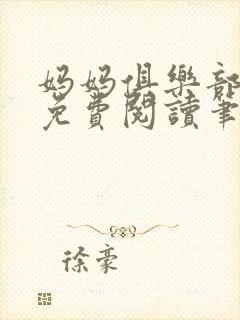 妈妈俱樂部
免費閱讀筆
徐豪